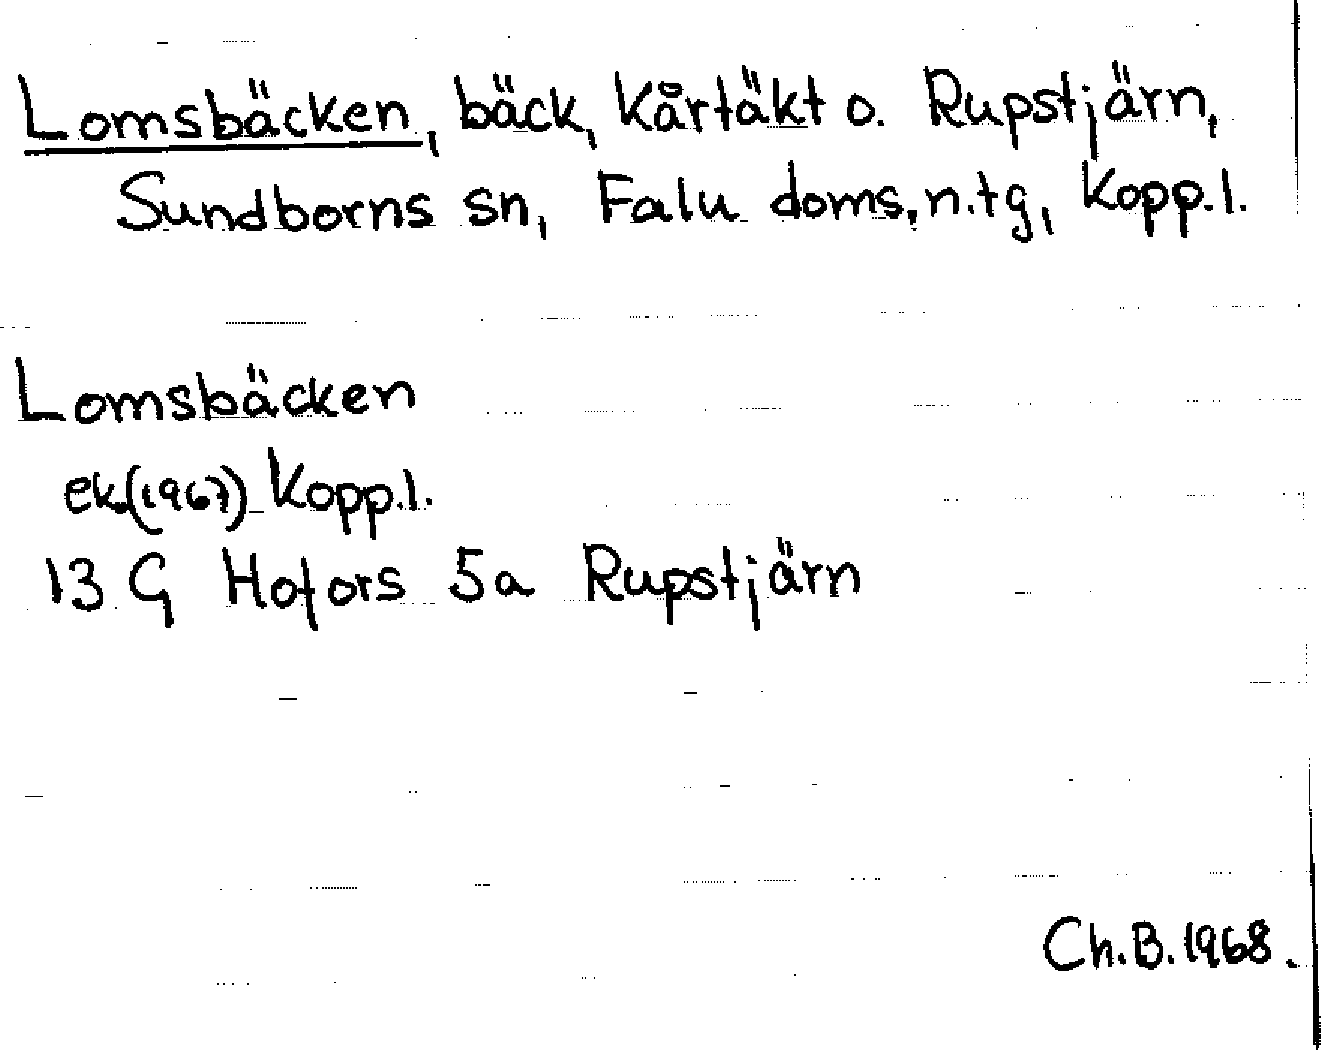 Lomsbäcken, bäck, Kårtäkt o. Rupstjärn,
Sundborns sn, Falu doms. n. tg, Kopp. l.
Lomsbäcken
ek. (1967) Kopp. l.
13 G Hofors 5a Rupstjärn
Ch. B. 1968.